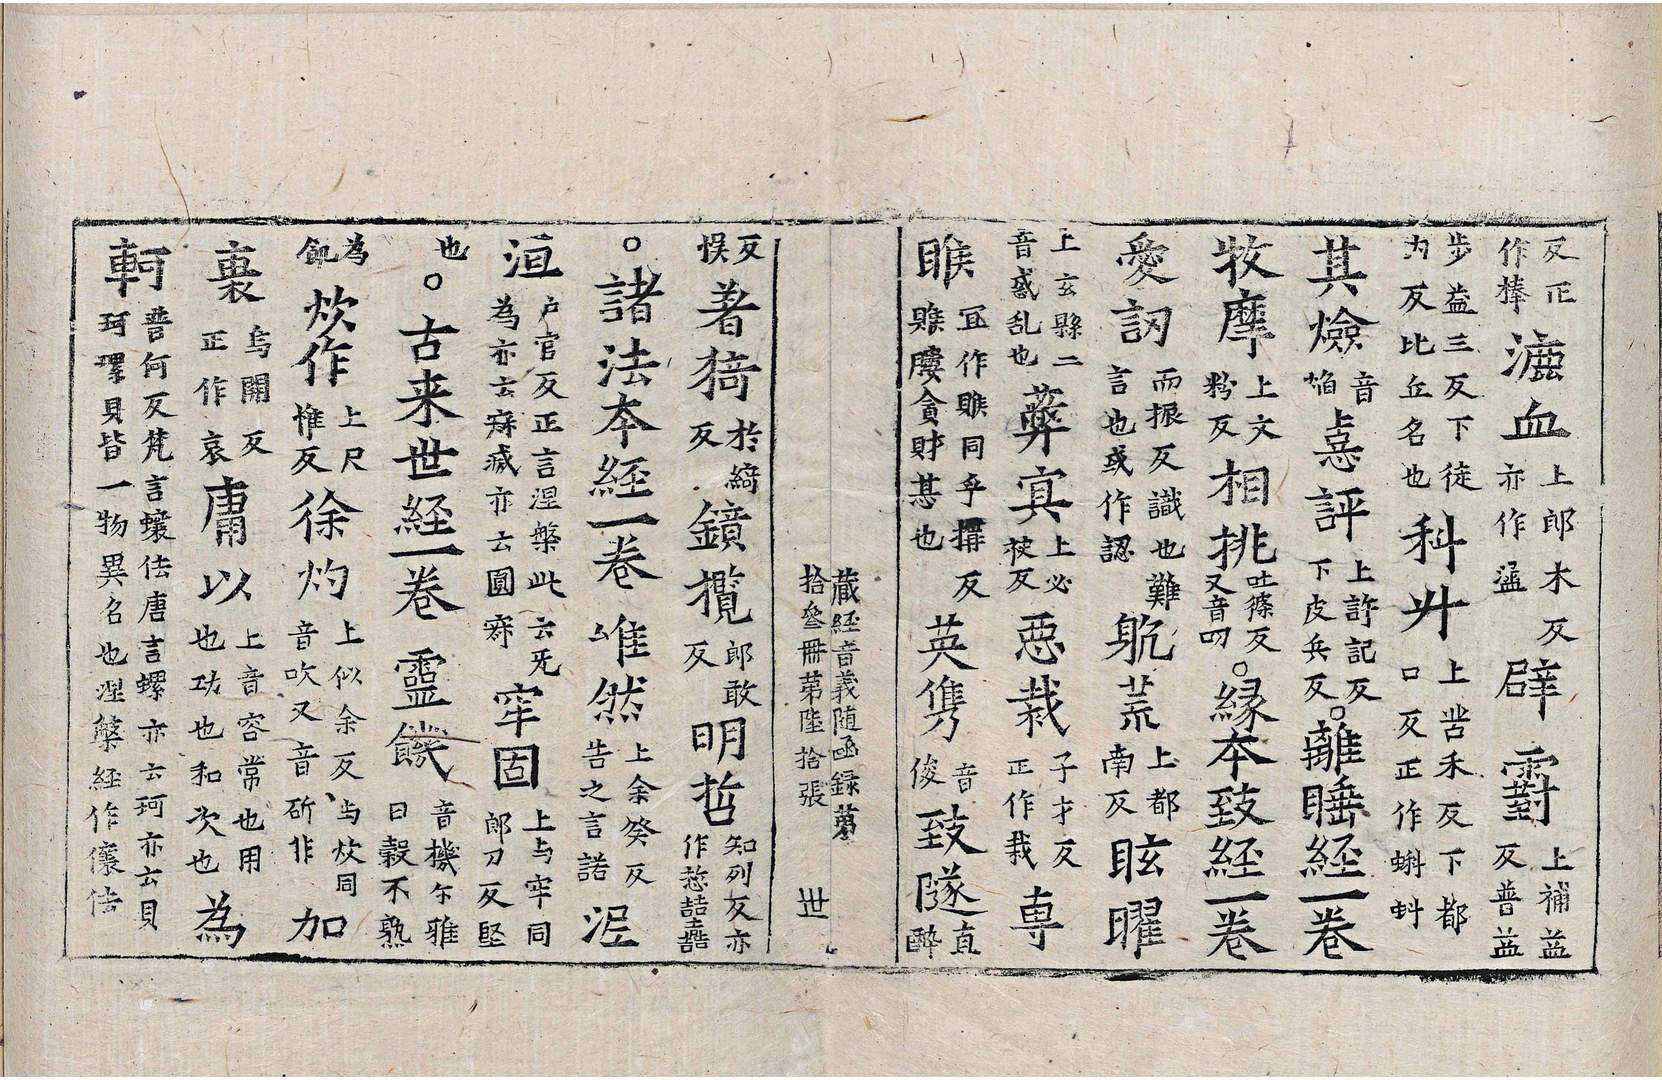 反正作棒漉血上郎木反亦作盝辟䨥上補益反普益
步益三反下徒內反比丘名也科㪷上苦禾反下都口反正作蝌蚪
其燄音焰憙評上許記反下皮兵反○離睡經一卷
牧摩上文粉反相挑吐篠反又音四○緣本致經一卷
愛訒而振反識也難言也或作認躭荒上都南反眩曜
上玄縣二音惑乱也彝寘上必袂反惡栽子才反正作栽専
睺冝作睺同乎搆反睺貗貪財甚也英儁音俊致隧直醉
藏經音義随函録苐拾叄冊苐陸拾張 世
反悮著猗於綺反鏡攬郎敢反明哲知列反亦作悊喆嚞
○諸法本經一卷 唯然上余癸反告之言諾泥
洹戶官反正言涅槃此云无為亦云寂滅亦云圓寂牢固上与牢同郎刀反堅
也○古来世經一卷 靈饑音機尒雅曰穀不熟
為飢炊作上尺惟反徐灼上似余反与炊同音吹又音斫作加
裏烏開反正作哀庸以上音容常也用也功也和次也為
軻普何反梵言蠰佉唐言螺亦云珂亦云貝珂瓅貝皆一物異名也涅槃經作儴佉